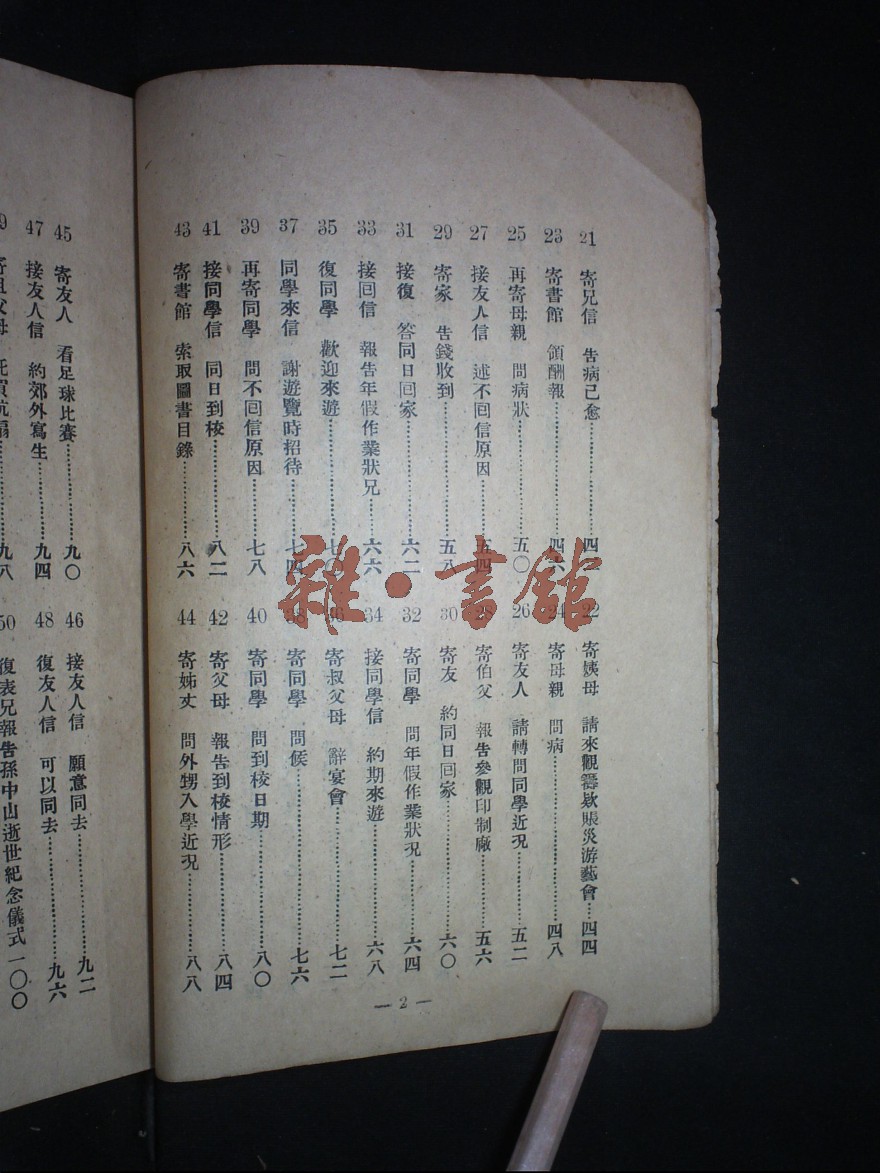 21 寄兄信 告病已愈………四
22 寄姨母 請來觀籌欵賬災游藝會…四四
23 寄書館 領酬報………四六
24 寄母親 問病………四八
25 再寄母親 問病狀………五〇
26 寄友人 請轉問同學近況………五二
27 接友人信 述不回信原因………五四
28 寄伯父 報告參觀印制廠………五六
29 寄家 告錢收到………五八
30 寄友 約同日回家………六〇
31 接復 答同日回家………六二
32 寄同學 問年假作業狀況………六四
33 接回信 報告年假作業狀兄………六六
34 接同學信 約期來遊………六八
35 復同學 歡迎來遊………七〇
36 寄叔父母 辭宴會………七二
37 同學來信 謝遊覽時招待………七四
38 寄同學 問候………七六
39 再寄同學 問不回信原因………七八
40 寄同學 問到校日期………八〇
41 接同學信 同日到校………八二
42 寄父母 報告到校情形………八四
43 寄書館 索取圖書目錄………八六
44 寄姊丈 問外甥入學近況………八八
— 2 —
45 寄友人 看足球比賽………九〇
46 接友人信 願意同去………九二
47 接友人信 約郊外寫生………九四
48 復友人信 可以同去………九六
九八
50 復表兄報告孫中山逝世紀念儀式 一〇〇
雜·書館